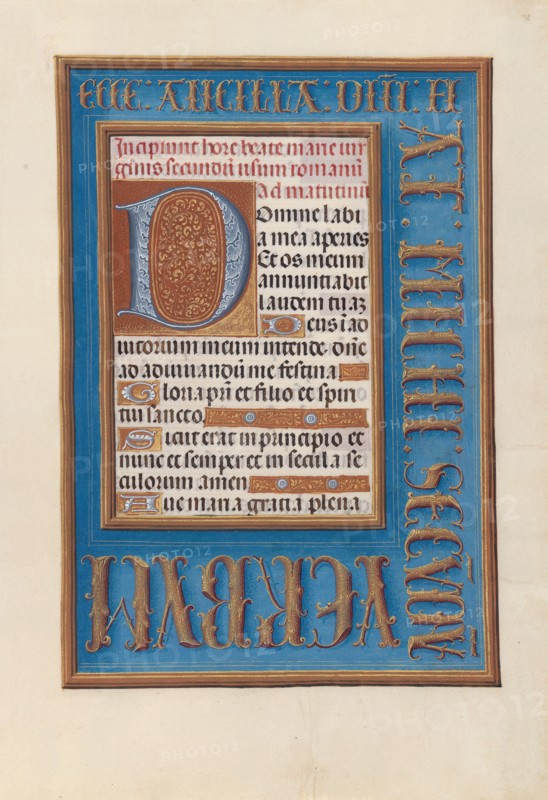 ECCE : ANCILLA : DÑI : FI
AT · MICHI · SECVDV̄
VERBVM
Incipiunt hore beate marie vir
ginis secundū usum romanū
Ad matutinū
Domine labi
a mea aperies
Et os meum
annuntiabit
laudem tuaʒ
Deus ī ad
iutorium meum intende. Dn̄e
ad adiuuandū me festina
Gloria pr̄i et filio et spiri
tui sancto
Sicut erat in principio et
nunc et semper et in secula se
culorum amen
Aue maria gratia plena
PHOTO12